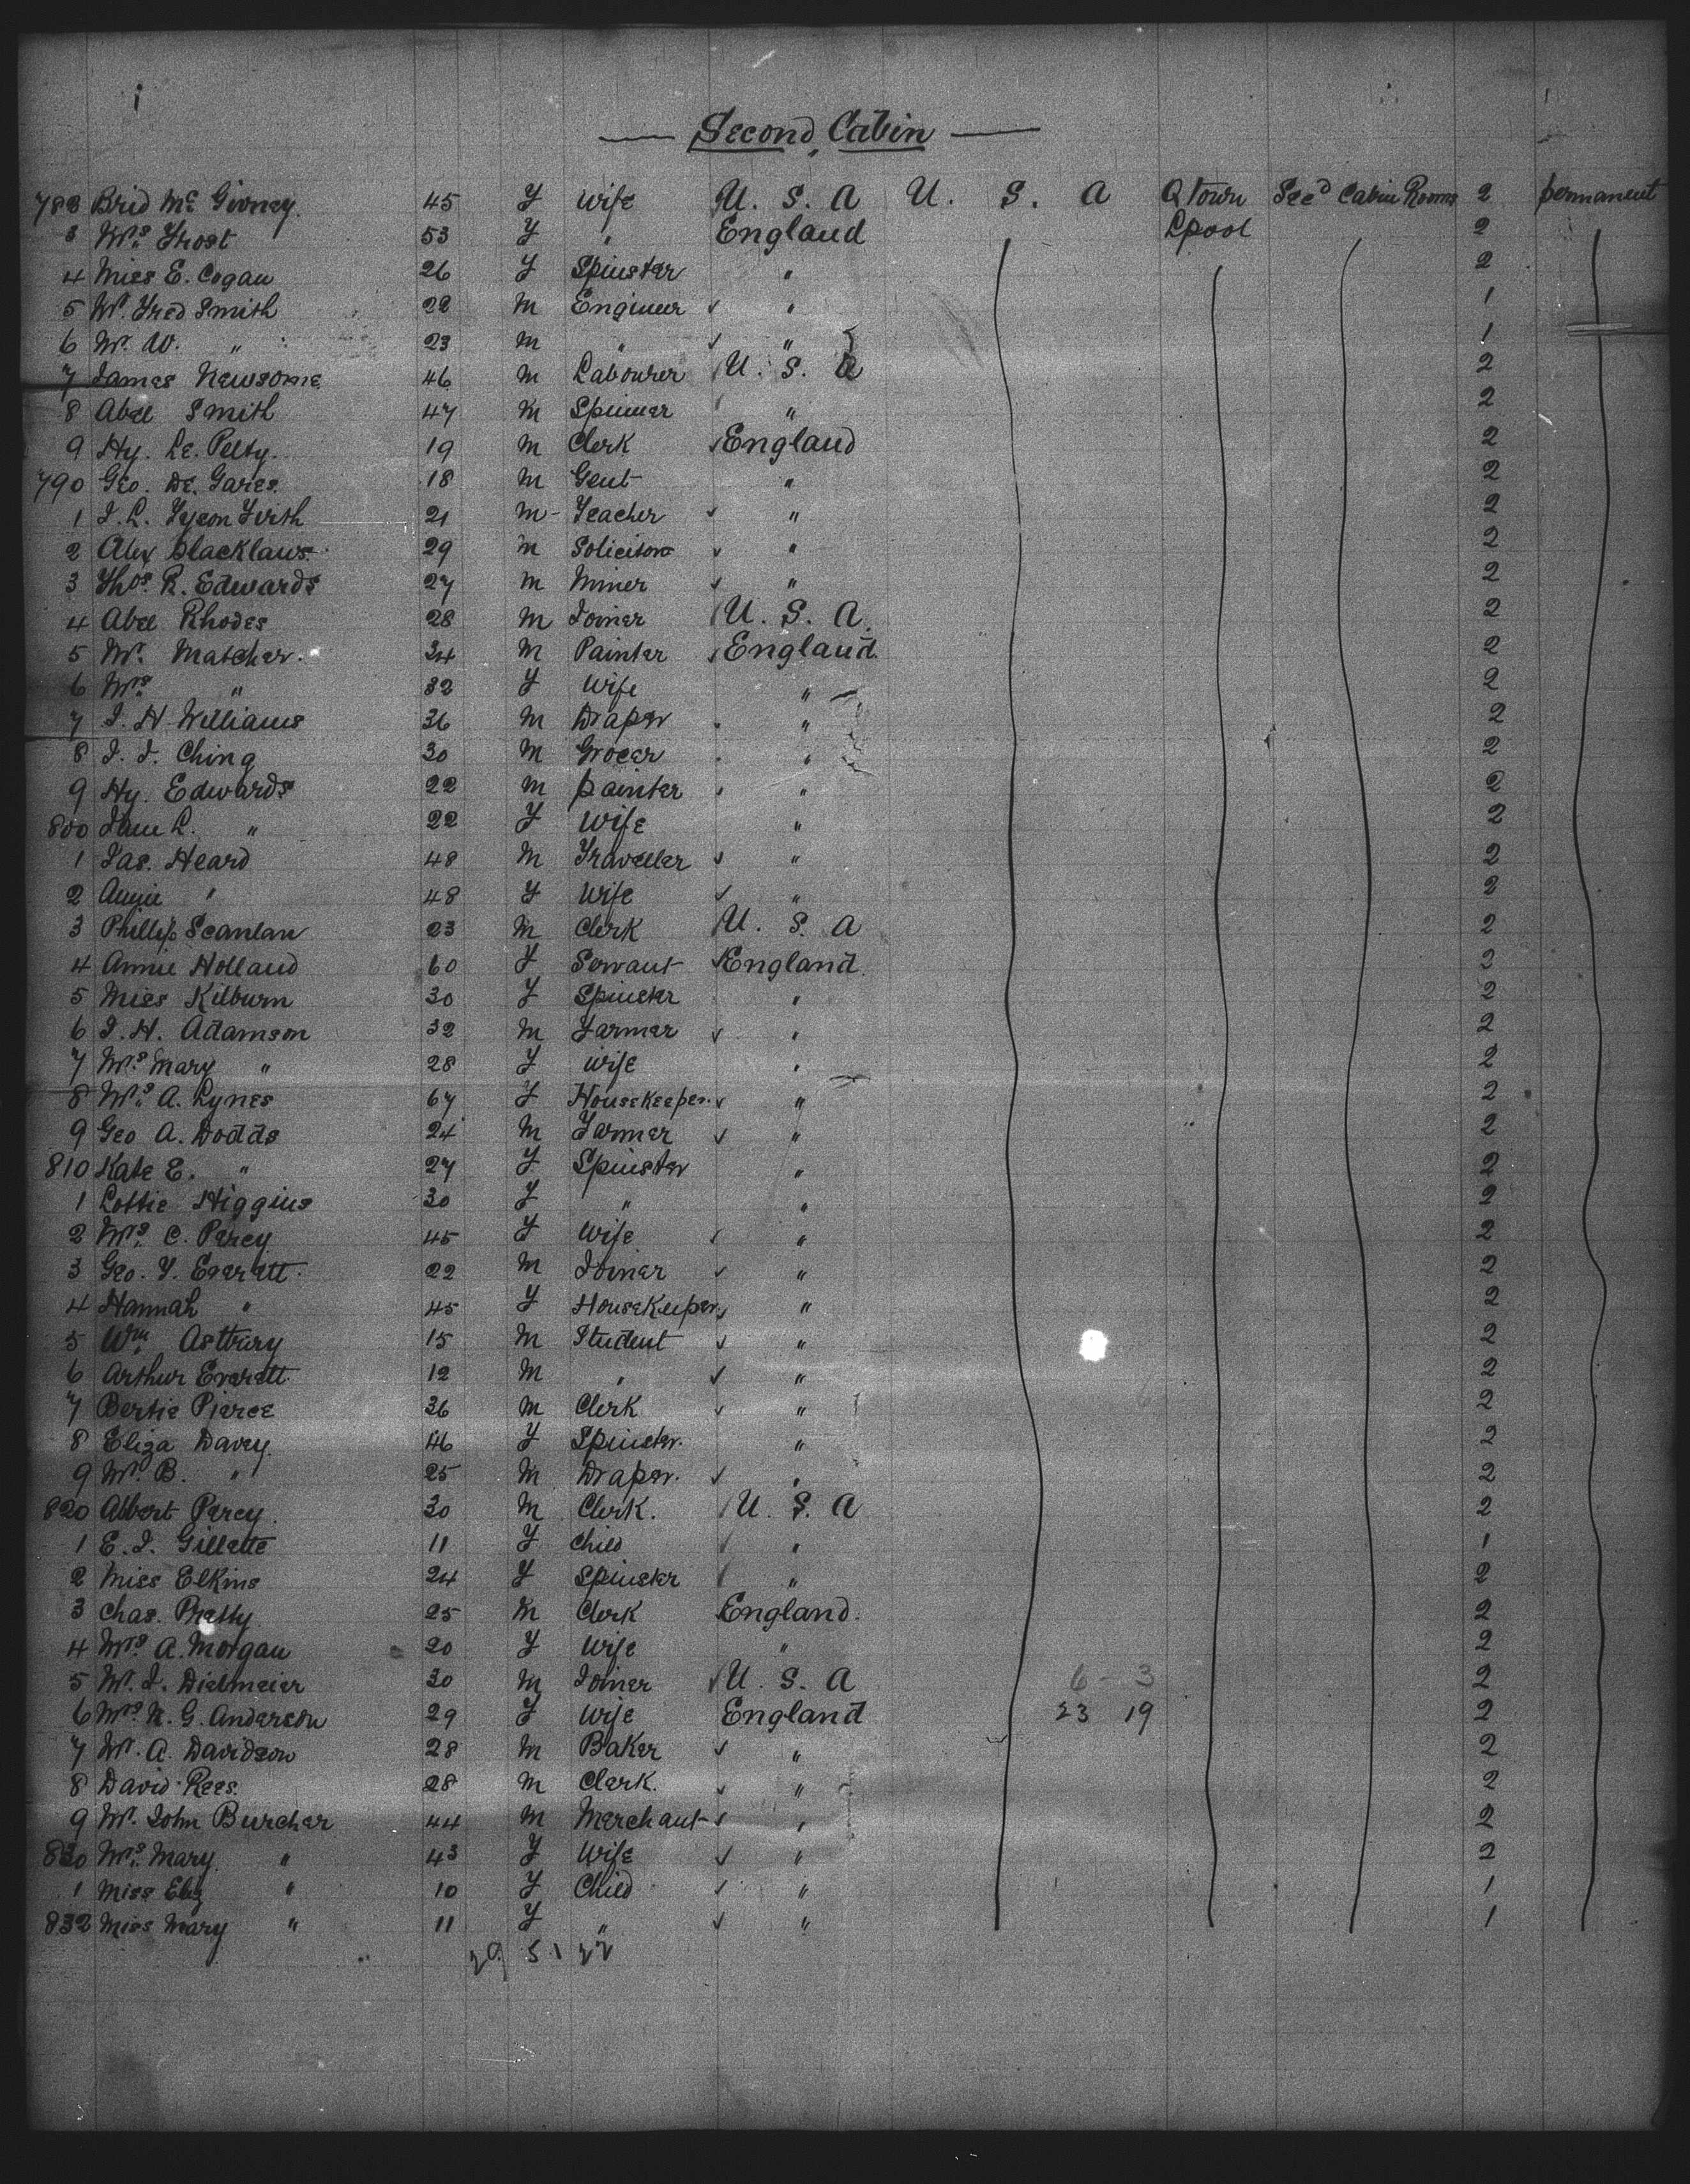 Second Cabin
782 Brid Mc Givney 45 F Wife U. S. A U. S. A Q Town Secd Cabin Rooms 2 permanent
3 Mrs Frost 53 F " England Lpool 2
4 Miss E. Cogan 26 F Spinster " 2
5 Mr. Fred Smith 22 M Engineer " 1
6 Mr. W. " 23 M " " 1
7 James Newsome 46 M Labourer U. S. A 2
8 Abel Smith 47 M Spinner " 2
9 Hy. Le. Pelty. 19 M Clerk England 2
790 Geo. De. Gares. 18 M Gent " 2
1 J. L. Tyeon Firth 21 M Teacher " 2
2 Alex Blacklaws 29 M Solicitor " 2
3 Thos. R. Edwards 27 M Miner " 2
4 Abel Rhodes 28 M Joiner U. S. A. 2
5 Mr. Matcher. 34 M Painter England 2
6 Mrs. " 32 F Wife " 2
7 J. H. Williams 36 M Draper " 2
8 J. J. Ching 30 M Grocer " 2
9 Hy. Edwards 22 M painter " 2
800 Jane L. " 22 F Wife " 2
1 Jas. Heard 48 M Traveller " 2
2 Annie " 48 F Wife " 2
3 Phillip Scanlan 23 M Clerk U. S. A 2
4 Annie Holland 60 F Servant England 2
5 Miss Kilburn 30 F Spinster " 2
6 J. H. Adamson 32 M Farmer " 2
7 Mrs. Mary " 28 F Wife " 2
8 Mrs. A. Lynes 67 F Housekeeper. " 2
9 Geo A. Dodds 24 M Farmer " 2
810 Kate E. " 27 F Spinster " 2
1 Lottie Higgins 30 F " " 2
2 Mrs. C. Percy 45 F Wife " 2
3 Geo. F. Everatt. 22 M Joiner " 2
4 Hannah " 45 F Housekeeper " 2
5 Wm. Astbury 15 M Student " 2
6 Arthur Everatt. 12 M " " 2
7 Bertie Pierce 36 M Clerk " 2
8 Eliza Davey. 46 F Spinster. " 2
9 Mr. B. " 25 M Draper. " 2
820 Albert Percy. 30 M Clerk. U. S. A 2
1 E. J. Gillette 11 F Child " 1
2 Miss Elkins 24 F Spinster " 2
3 Chas. Pratty 25 M Clerk England. 2
4 Mrs. A. Morgan 20 F Wife " 2
5 Mr. J. Dielmeier 30 M Joiner U. S. A 6 - 3 2
6 Mrs. N. G. Anderson 29 F Wife England 23 19 2
7 Mr. A. Davidson 28 M Baker " 2
8 David Rees. 28 M Clerk. " 2
9 Mr. John Burcher 44 M Merchant " 2
830 Mrs. Mary " 43 F Wife " 2
1 Miss Eliz " 10 F Child " 1
832 Miss Mary " 11 F " " 1
29 51 22